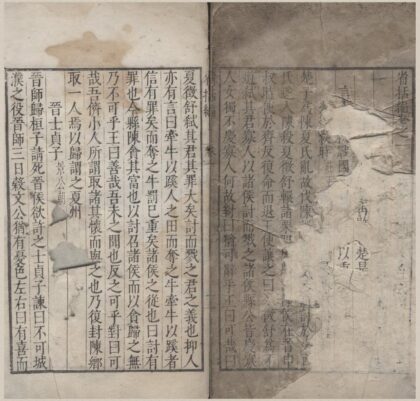 省括編卷之一
楚
陳夏氏亂故伐陳
氏遂入陳殺夏徵舒轘諸栗
侯在晉申
叔時使於齊反復命而退王使讓之曰
徵舒為不
道弒其君寡人以諸侯討而戮之諸侯縣公皆慶寡
人女獨不慶寡人何故對曰猶可辭乎王曰可哉曰
夏徵舒弒其君其罪大矣討而戮之君之義也抑人
亦有言曰牽牛以蹊人之田而奪之牛牽牛以蹊者
信有罪矣而奪之牛罰已重矣諸侯之從也曰討有
罪也今縣陳貪其富也以討召諸侯而以貪歸之無
乃不可乎王曰善哉吾未之聞也反之可乎對曰可
哉吾儕小人所謂取諸其懷而與之也乃復封陳鄉
取一人焉以歸謂之夏州
晉士貞子 景公
晉師歸桓子請死晉侯欲許之士貞子諫曰不可城
濮之役晉師三日穀文公猶有憂色左右曰有喜而